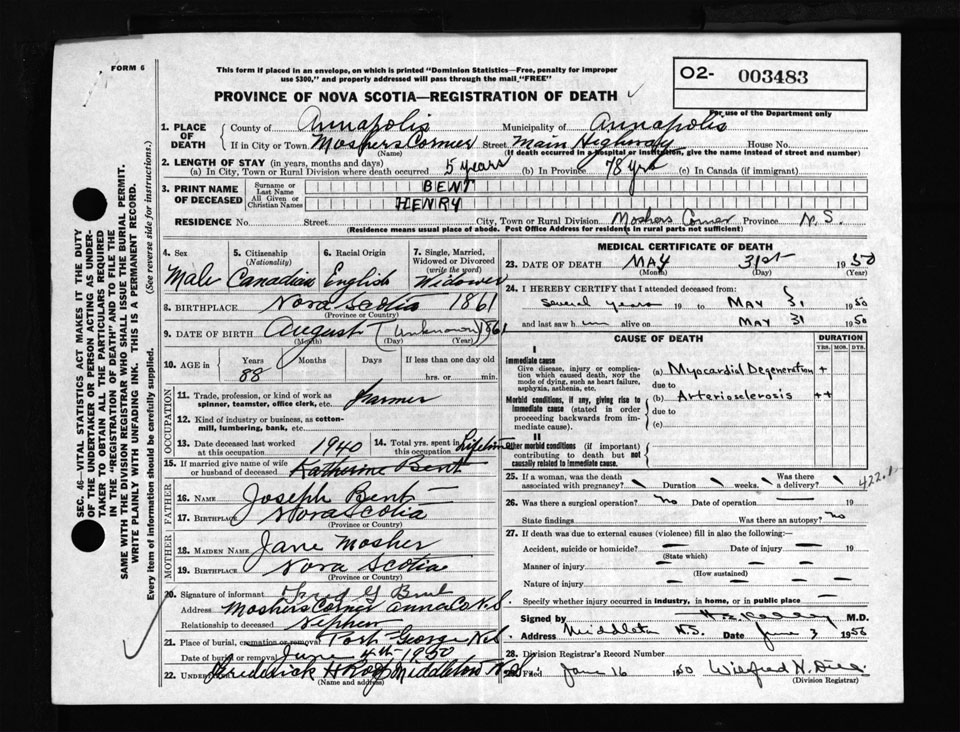 FORM 6
This form if placed in an envelope, on which is printed "Dominion Statistics—Free, penalty for improper
use $300," and properly addressed will pass through the mail, "FREE"
O2- 003483
PROVINCE OF NOVA SCOTIA—REGISTRATION OF DEATH
For use of the Department only
SEC. 46—VITAL STATISTICS ACT MAKES IT THE DUTY
OF THE UNDERTAKER OR PERSON ACTING AS UNDER-
TAKER TO OBTAIN ALL THE PARTICULARS REQUIRED
IN THE "REGISTRATION OF DEATH" AND TO FILE THE
SAME WITH THE DIVISION REGISTRAR WHO SHALL ISSUE THE BURIAL PERMIT.
WRITE PLAINLY WITH UNFADING INK. THIS IS A PERMANENT RECORD.
Every item of information should be carefully supplied. (See reverse side for instructions.)
1. PLACE OF DEATH
County of Annapolis Municipality of Annapolis
If in City or Town Moshers Corner Street Main Highway House No.
(Name) (If death occurred in a hospital or institution, give the name instead of street and number)
2. LENGTH OF STAY (in years, months and days)
(a) In City, Town or Rural Division where death occurred 5 years (b) In Province 78 yrs (c) In Canada (if immigrant)
3. PRINT NAME OF DECEASED
Surname or Last Name BENT
All Given or Christian Names HENRY
RESIDENCE No. Street City, Town or Rural Division Moshers Corner Province N.S.
(Residence means usual place of abode. Post Office Address for residents in rural parts not sufficient)
4. Sex 5. Citizenship (Nationality) 6. Racial Origin 7. Single, Married, Widowed or Divorced (write the word)
Male Canadian English Widower
8. BIRTHPLACE Nova Scotia 1861
(Province or Country)
9. DATE OF BIRTH August (Unknown) 1861
(Month) (Day) (Year)
10. AGE IN Years Months Days If less than one day old
88 hrs. or min.
OCCUPATION
11. Trade, profession, or kind of work as spinner, teamster, office clerk, etc. Farmer
12. Kind of industry or business, as cotton-mill, lumbering, bank, etc.
13. Date deceased last worked at this occupation 1940 14. Total yrs. spent in this occupation Lifetime
15. If married give name of wife or husband of deceased Katherine Bent
FATHER
16. NAME Joseph Bent
17. BIRTHPLACE Nova Scotia
(Province or Country)
MOTHER
18. MAIDEN NAME Jane Mosher
19. BIRTHPLACE Nova Scotia
(Province or Country)
20. Signature of informant Fred G Bent
Address Moshers Corner Anna Co N.S
Relationship to deceased Nephew
21. Place of burial, cremation or removal Port George N.S
Date of burial or removal June 4th 1950
22. UNDERTAKER Frederick H Roop Middleton N.S.
(Name and address)
MEDICAL CERTIFICATE OF DEATH
23. DATE OF DEATH MAY 31st 1950
(Month) (Day) (Year)
24. I HEREBY CERTIFY that I attended deceased from:
several years 19 to MAY 31 1950
and last saw him alive on MAY 31 1950
CAUSE OF DEATH DURATION
YRS. MOS. DYS.
I
Immediate cause
Give disease, injury or complication which caused death, NOT the mode of dying, such as heart failure, asphyxia, asthenia, etc.
(a) Myocardial Degeneration +
due to
Morbid conditions, if any, giving rise to immediate cause (stated in order proceeding backwards from immediate cause).
(b) Arteriosclerosis ++
due to
(c)
II
Other morbid conditions (if important) contributing to death but not causally related to immediate cause.
25. If a woman, was the death associated with pregnancy? Duration weeks. Was there a delivery?
422.1
26. Was there a surgical operation? no Date of operation 19
State findings Was there an autopsy? no
27. If death was due to external causes (violence) fill in also the following:—
Accident, suicide or homicide? Date of injury 19
(State which)
Manner of injury
(How sustained)
Nature of injury
Specify whether injury occurred in industry, in home, or in public place
Signed by M.D.
Address Middleton N.S. Date June 3 1950
28. Division Registrar's Record Number
Filed June 16 1950 Wilfred H.
(Division Registrar)